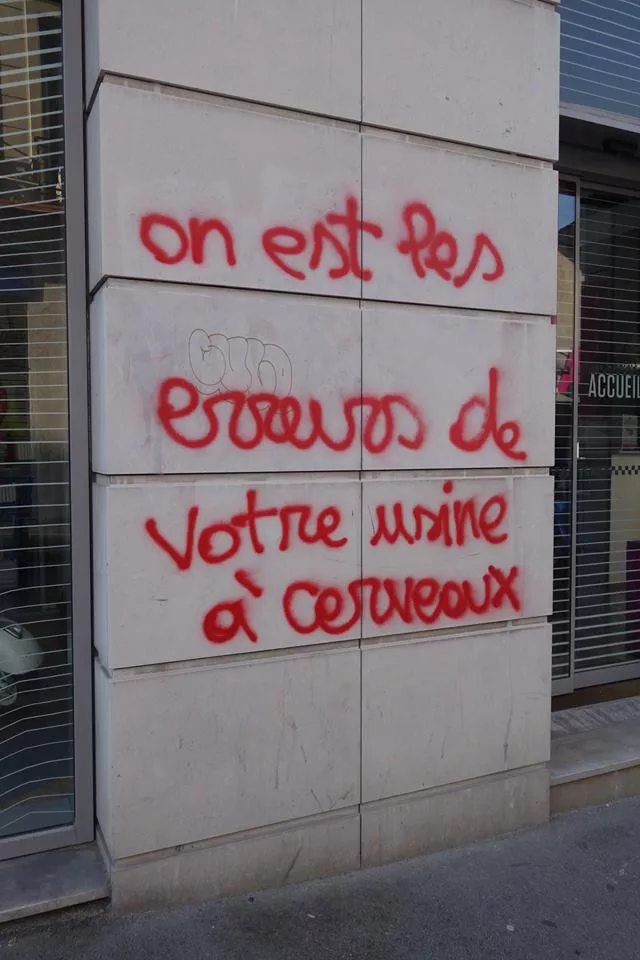 on est les
erreurs de
votre usine
à cerveaux
ACCUEIL